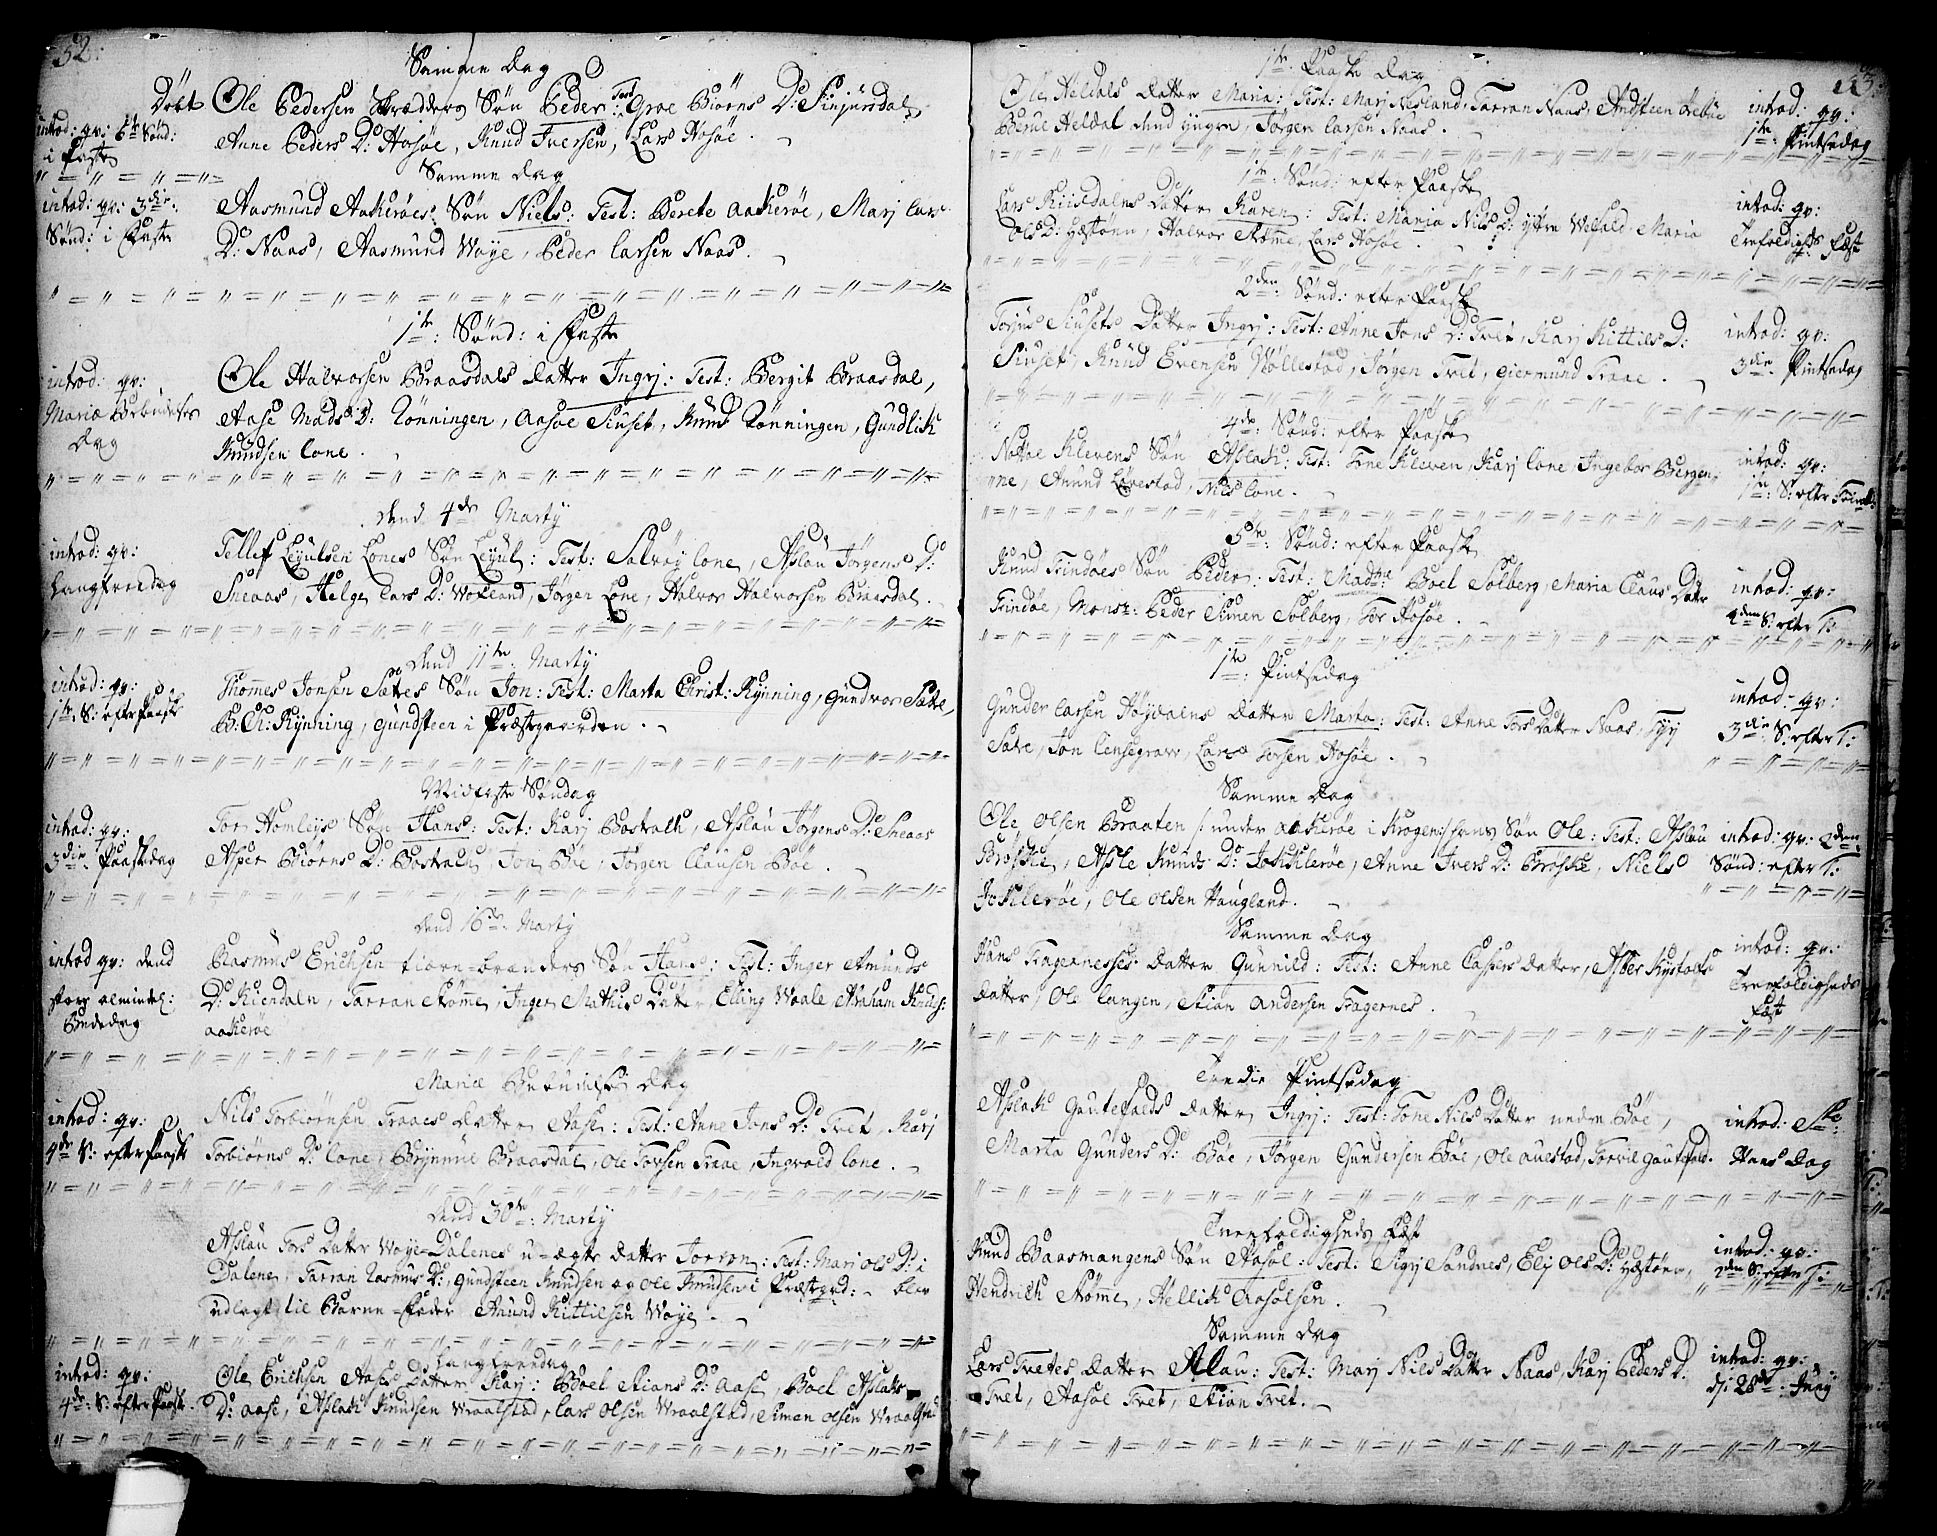 52.
Samme Dag
Döbt Ole Pedersen Skrædders Søn Peder Test Groe Biörns D: Sinjursdal
introd: qv: 6te Sønd: i Faste
Anne Peders D: Hosøe, Knud Iversen, Lars Hosøe
Samme Dag
introd: qv: 3die Sønd: i Faste
Aasmund Aakerøes Søn Niels: Test: Berete Aakerøe, Marj Lars
D: Naas, Aasmund Woje, Peder Larsen Naas.
1te: Sønd: i Faste
introd: qv: Mariæ Bebudelses Dag
Ole Halvorsen Braasdals Datter Ingrj: Test: Bergit Braasdal,
Aase Mads D: Rønningen, Aasøe Siuset, Knud Rønningen, Gundlik
Knudsen Lone.
dend 4de Martij
introd: qv: Langfredag
Tellef Lejulsen Lones Søn Lejul: Test: Salvøy Lone, Aslau Jörgens D:
Sneaas, Helge Lars D: Wefland, Jörgen Lone, Halvor Halvorsen Braasdal.
dend 11te: Martij
introd: qv: 1te: S: efter Paaske
Thomes Jonsen Sætres Søn Jon: Test: Marta Christ: Kynning, Gundvor Sæte,
B: Ch: Kynning, Gundsteen i Præstegaarden.
Midfaste Søndag
introd: qv: 3die Paaskedag
Tor Homleys Søn Hans: Test: Karj Bostrak, Aslau Jörgens D: Sneaas
Asper Biörns D: Bostrak, Jon Böe, Jörgen Clausen Böe.
dend 16de: Martij
introd qv: dend store almindel: Bededag
Rasmus Erichsen tiære-brænders Søn Hans: Test: Inger Amunds
D: Kiendaln, Tarran Strømme, Inger Mathis Datter, Elling Waale, Abraham Knuds:
aakerøe
Mariæ Bebudelses Dag
introd: qv: 4de S: efter Paaske
Nils Torbiörnsen Traaes Datter Aase: Test: Anne Jons D: Tret, Karj
Torbiörns D: Lone, Brynnul Braasdal, Ole Torsen Traae, Ingvold Lone.
dend 30te: Martij
Aslau Tors Datter Woje-Dalenes u-ægte Datter Torron: Test: Mari Ols D: i
Dalene, Tarran Rasmus D:, Gundsteen Knudsen og Ole Knudsen i Præstgrd: - blev
udlagt til Barne-Fader Amund Kittilsen Woje.
Langfredag
introd: qv: 4de: S: efter Paaske.
Ole Erichsen Aases Datter Karj: Boel Stians D: Aase, Boel Aslaks
D: Aase, Aslak Knudsen Wraalstad, Lars Olsen Wraalstad, Simen Olsen Wraalstad
53.
1te. Paaske Dag
Ole Heldals Datter Maria: Test: Marj Nesland, Tarran Naas, Amdsteen Trebøe
Berue Heldal dend yngre, Jörgen Larsen Naas.
introd: qv: 1te: Pintsedag
1te: Sønd: efter Paaske
Lars Kiisdalns Datter Karen: Test: Maria Nils D: yttre Wefald, Maria
Ols D: Hæstøen, Halvor Strømme, Lars Hosøe.
introd: qv: Trefoldigheds Fæst
2den: Sønd: efter Paaske
Torjus Siusets Datter Ingrj: Test: Anne Jons D: Tret, Karj Kittils D:
Siuset, Knud Evensen Møllestad, Jörgen Tret, Giermund Traae.
introd: qv: 3die Pintsedag
4de: Sønd: efter Paaske
Nottoe Klevens Søn Aslak: Test: Tone Kleven, Karj Lone, Ingebor Bergen,
ne, Amund Løvestad, Nils Lone.
introd: qv: 1te: S: efter Trinit:
5te: Sønd: efter Paaske
Knud Trindøes Søn Peder: Test: Madme Boel Solberg, Maria Claus Datter
Trindøe, Monsr: Peder Simen Solberg, Tor Hosøe.
introd: qv: 2den S: efter T:
1te: Pintsedag
Gunder Larsen Höydalns Datter Marta: Test: Anne Tors Datter Naas, Tyrj
Sæte, Jon Lensegrav, Lars Torsen Hosøe.
introd: qv: 3die: S: efter T:
Samme Dag
Ole Olsen Braaten /: under Aakerøe i Krogen:/ hans Søn Ole: Test: Aslau
Broske, Asle Knuds D: Jokklerøe, Anne Ivers D: Broske, Niels
Jokklerøe, Ole Olsen Haugland.
introd: qv: 2den: Sønd: efter T:
Samme Dag
Hans Tragernesses Datter Gunnild: Test: Anne Caspers Datter, Asber Kystols
Datter, Ole Langen, Stian Andersen Tragernes.
introd: qv: Trefoldigheds Fæst
Tredie Pintsedag
Aslak Gautefalds Datter Ingrj: Test: Tone Nils Datter nedre Böe,
Marta Gunders D: Böe, Jörgen Gundersen Böe, Ole Auestad, Torvil Gautefald.
introd: Ste: Hans Dag
Trefoldigheds Fæst
Knud Baasmangens Søn Aasol: Test: Sigrj Sandnes, Elj Ols D: Hæstøen,
Hendrich Strömme, Hellik Aasolsen.
introd: qv: 2den S: efter T:
Samme Dag
Lars Tretes Datter Aslau: Test: Marj Niels Datter Naas, Karj Peders D:
Tret, Aasol Tret, Stian Tret.
introd: qv: d: 28de: Junij